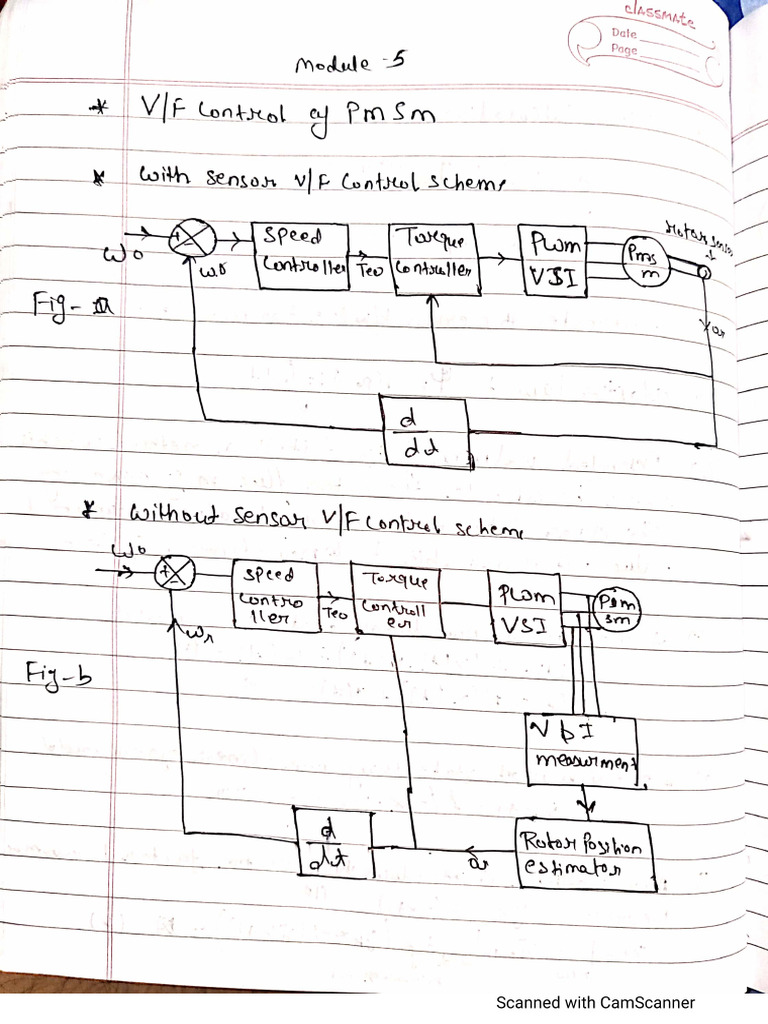 classmate
Date
Page
Module - 5
* V/F Control of PMSM
* with sensor V/F Control scheme
ωo
+
-
ωr
Speed
Controller
Teo
Torque
Controller
PWM
VSI
Pms
m
Rotor sensor
θr
Fig- a
d
dt
* without sensor V/F Control scheme
ωo
+
-
Speed
Contro
ller.
Teo
Torque
Controll
er
PWM
VSI
Pm
sm
ωr
Fig-b
V & I
measurment
d
dt
θr
Rotor Position
estimator
Scanned with CamScanner